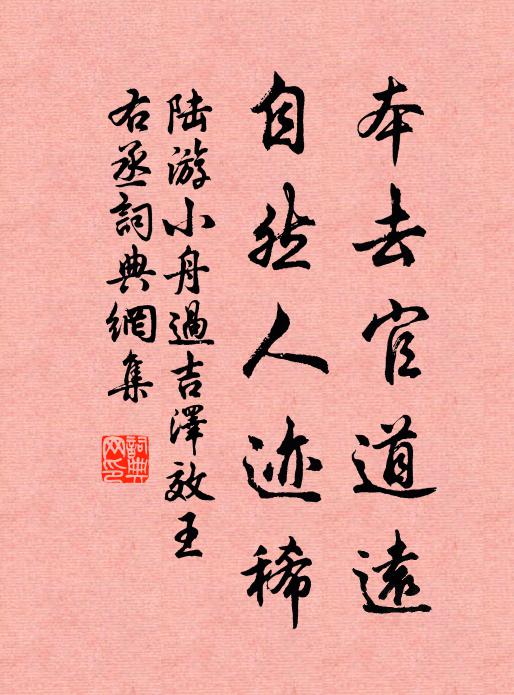 本去官道遠
自然人迹稀
陆游小舟過吉澤效王
右丞詞典網集
詞典网印